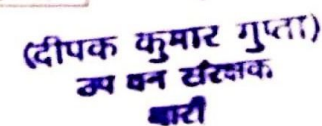 (दीपक कुमार गुप्ता)
उप वन संरक्षक